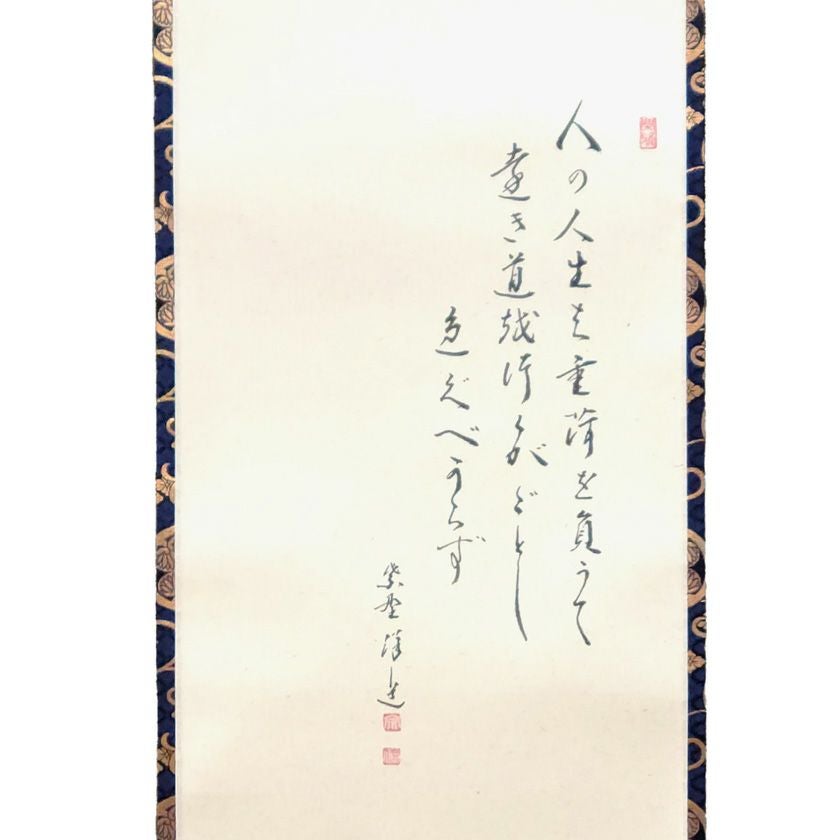 人の人生は重荷を負うて
遠き道を行くがごとし
急ぐべからず
紫野